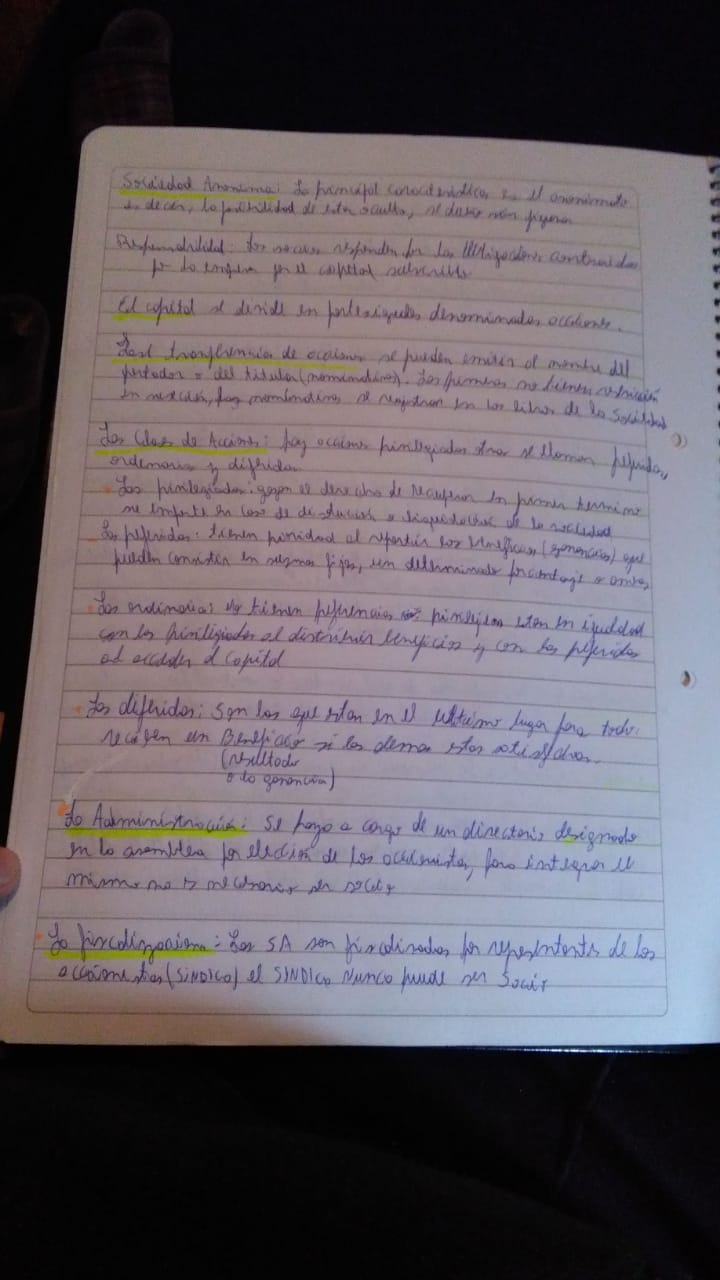 Sociedad Anonima: La principal caracteristica es el anonimato
es decir, la posibilidad de estar oculto, el dueño
Responsabilidad: Los socios responden por las obligaciones contraidas
por la empresa por el capital suscripto
El capital se divide en partes iguales denominadas acciones.
La transferencia de acciones se pueden emitir al nombre del
portador o del titular (nominativas). Las primeras no tienen restricción
en las nominativas se registran en los libros de la Sociedad
Las Clases de Acciones: hay acciones privilegiadas otras se llaman preferidas,
ordinarias y diferidas
Las privilegiadas: gozan el derecho de recuperar en primer termino
su importe en caso de disolución o liquidación de la sociedad
Las preferidas: tienen prioridad al repartir los beneficios (ganancias) que
pueden consistir en sumas fijas, un determinado porcentaje o ambos
Las ordinarias: No tienen preferencias privilegios estan en igualdad
con las privilegiadas al distribuir beneficios y con las preferidas
al acceder al capital
Las diferidas: Son las que estan en el ultimo lugar para todo.
reciben un Beneficio si los demas estan satisfechos.
(resultado
o la ganancia)
La Administración: Se haya a cargo de un directorio designado
en la asamblea por elección de los accionistas, para integrar el
mismo no es necesario ser socio
La fiscalizacion: Las SA son fiscalizadas por representante de los
accionistas (SINDICO) el SINDICO Nunca puede ser Socio